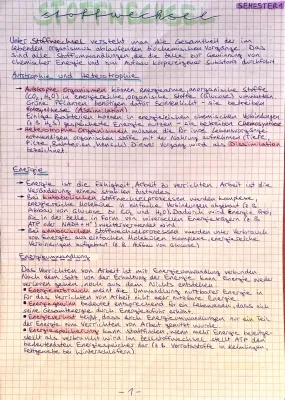 SEMESTER 1
Stoffwechsel
Unter Stoffwechsel versteht man die Gesamtheit der im
lebenden Organismus ablaufenden biochemischen Vorgänge. Das
sind alle Stoffumwandlungen, die die Zelle zur Gewinnung von
chemischer Energie und zum Aufbau körpereigener Substanz durchführt
Autotrophie und Heterotrophie
Autotrophe Organismen können energiearme, anorganische Stoffe
(CO2, H2O) in energiereiche, organische Stoffe (Glucose) umwandeln
Grüne Pflanzen benötigen dafür Sonnenlicht - sie betreiben
Fotosynthese (Assimilation)
Einige Bakterien können in energiereichen chemischen Verbindungen
gespeicherte Energie nutzen - sie betreiben Chemosynthese
Heterotrophe Organismen müssen die für ihre Lebensvorgänge
notwendigen organischen Stoffe mit der Nahrung aufnehmen (Tiere,
Pilze, Bakterien, Mensch). Dieser Vorgang wird als Dissimilation
bezeichnet
Energie
→ Energie ist die Fähigkeit Arbeit zu verrichten. Arbeit ist die
Veränderung eines stabilen Zustandes
→ Bei katabolischen Stoffwechselprozessen werden komplexe,
energiereiche Moleküle in einfache Verbindungen abgebaut (z.B.
Abbau von Glucose zu CO2 und H2O). Dadurch wird Energie frei,
die in der Zelle in Form von energiereichen (z.B.
ATP oder NADH+H+) weiterverwendet wird.
→ Bei anabolischen Stoffwechselprozessen werden unter Verbrauch
von Energie aus einfachen Molekülen komplexe, energiereiche
Verbindungen aufgebaut (z.B. Aufbau von Glucose)
Energieumwandlung
Das Verrichten von Arbeit ist mit Energieumwandlung verbunden
Nach dem Satz von der Erhaltung der Energie kann Energie weder
verloren gehen, noch aus dem Nichts entstehen
Energieverbrauch meint die Umwandlung nutzbarer Energie in
für das Verrichten von Arbeit nicht mehr nutzbare Energie.
bedeutet entsprechend für ein Lebewesen, dass sich
seine Gesamtenergie durch Energiezufuhr erhöht.
Energieverlust heißt, dass durch Energieumwandlungen nur ein Teil
der Energie zum Verrichten von Arbeit genutzt wurde.
Energiespeicherung kann stattfinden, wenn mehr Energie bereitge-
stellt als verbraucht wird. Im Zellstoffwechsel stellt ATP den
bedeutendsten Energiespeicher dar (z.B. Vorratsstoffe in Keimlingen,
Fettgewebe bei Winterschläfern)
- 1 -